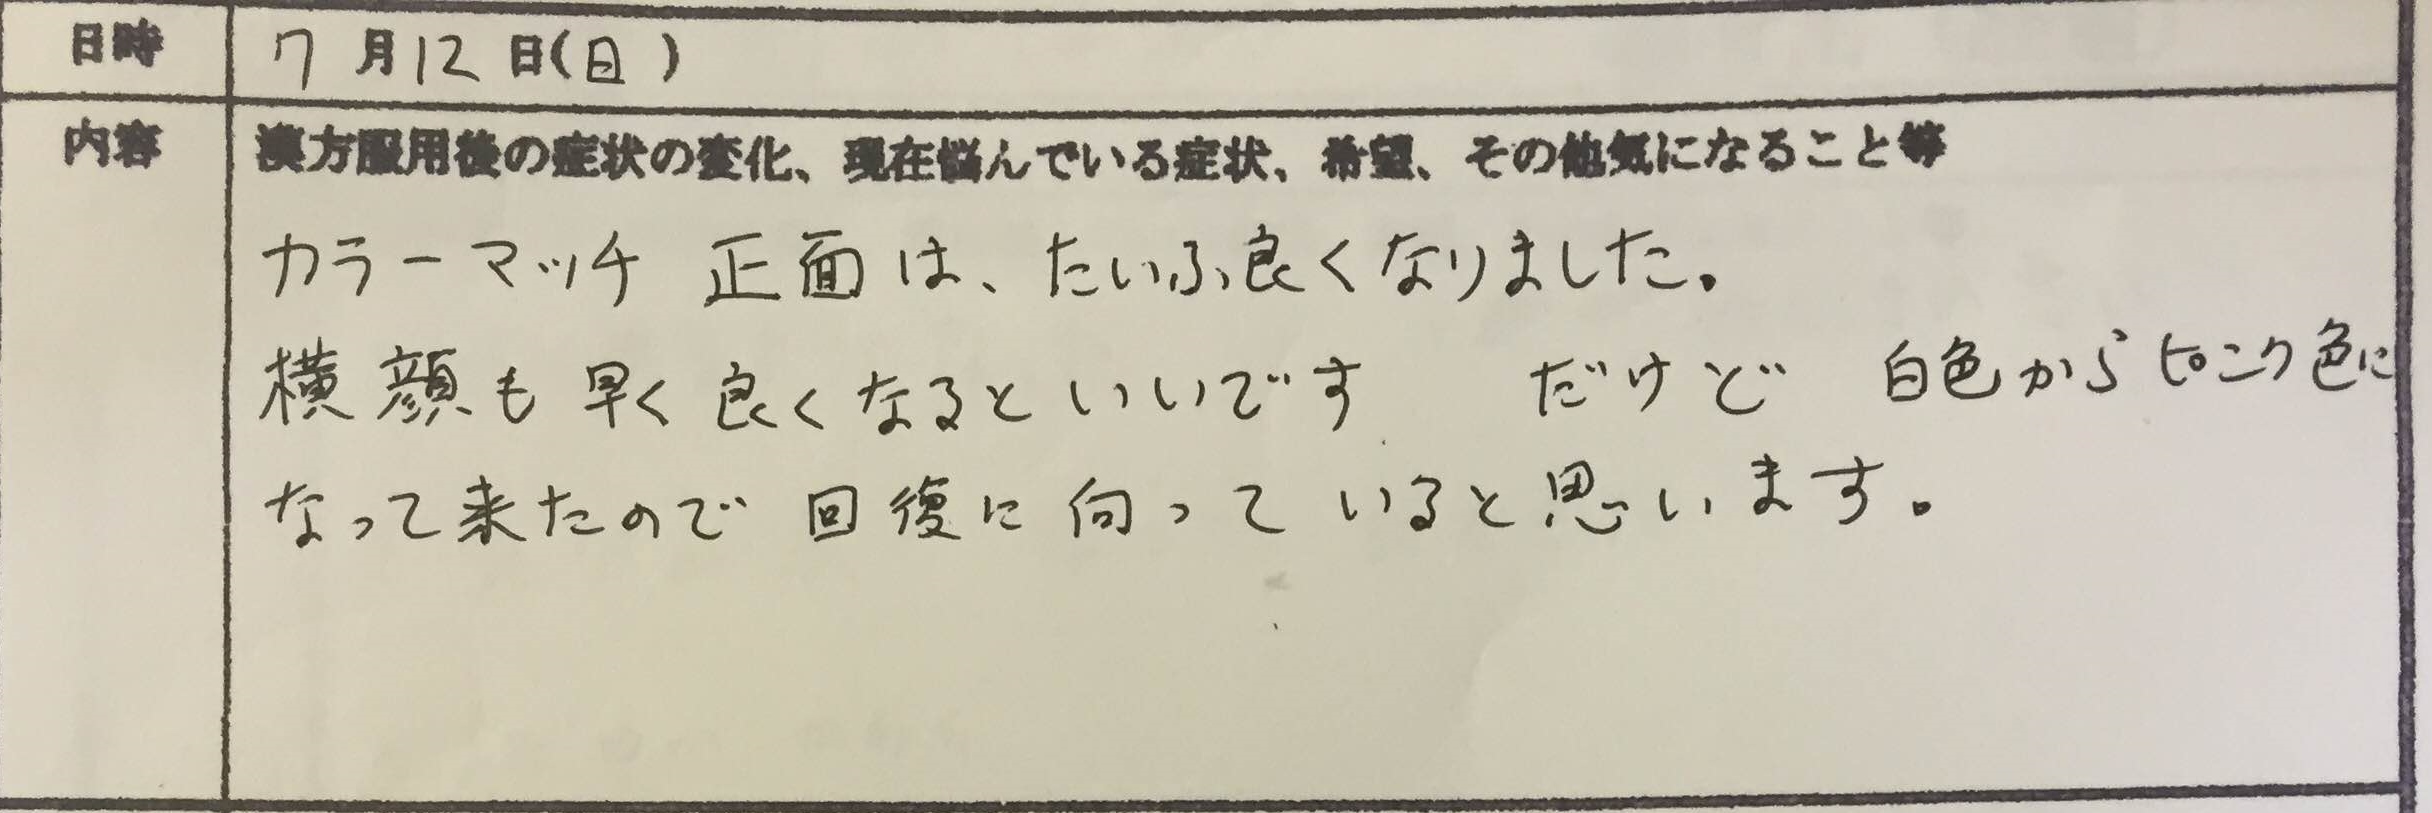 日時 7月12日(日)
内容 漢方服用後の症状の変化、現在悩んでいる症状、希望、その他気になること等
カラーマッチ 正面は、たいふ良くなりました。
横顔も早く良くなるといいです だけど 白色からピンク色に
なって来たので回復に向っていると思います。